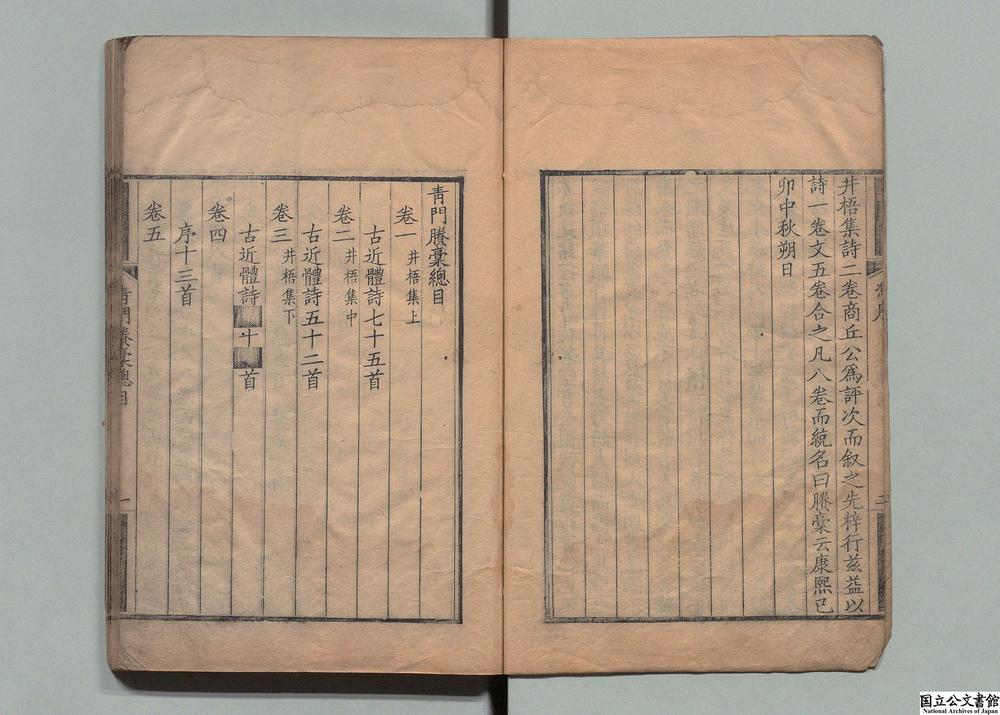 井梧集詩二卷商丘公爲評次而叙之先梓行茲益以
詩一卷文五卷合之凡八卷而統名曰賸稾云康熙已
卯中秋朔日
二
青門賸稾總目
卷一 井梧集上
古近體詩七十五首
卷二 井梧集中
古近體詩五十二首
卷三 井梧集下
古近體詩 十 首
卷四
序十三首
卷五
青門賸稾總目
一
国立公文書館
National Archives of Japan